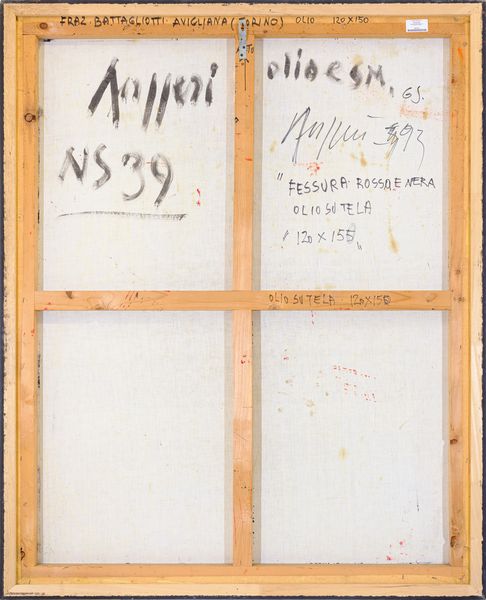 FRAZ. BATTAGLIOTTI AVIGLIANA (TORINO) OLIO 120X150
Ruggeri
NS 39
olio e SM.
GS.
Ruggeri 93
"FESSURA ROSSO E NERA
OLIO SU TELA
"120 X 155"
OLIO SU TELA 120X155